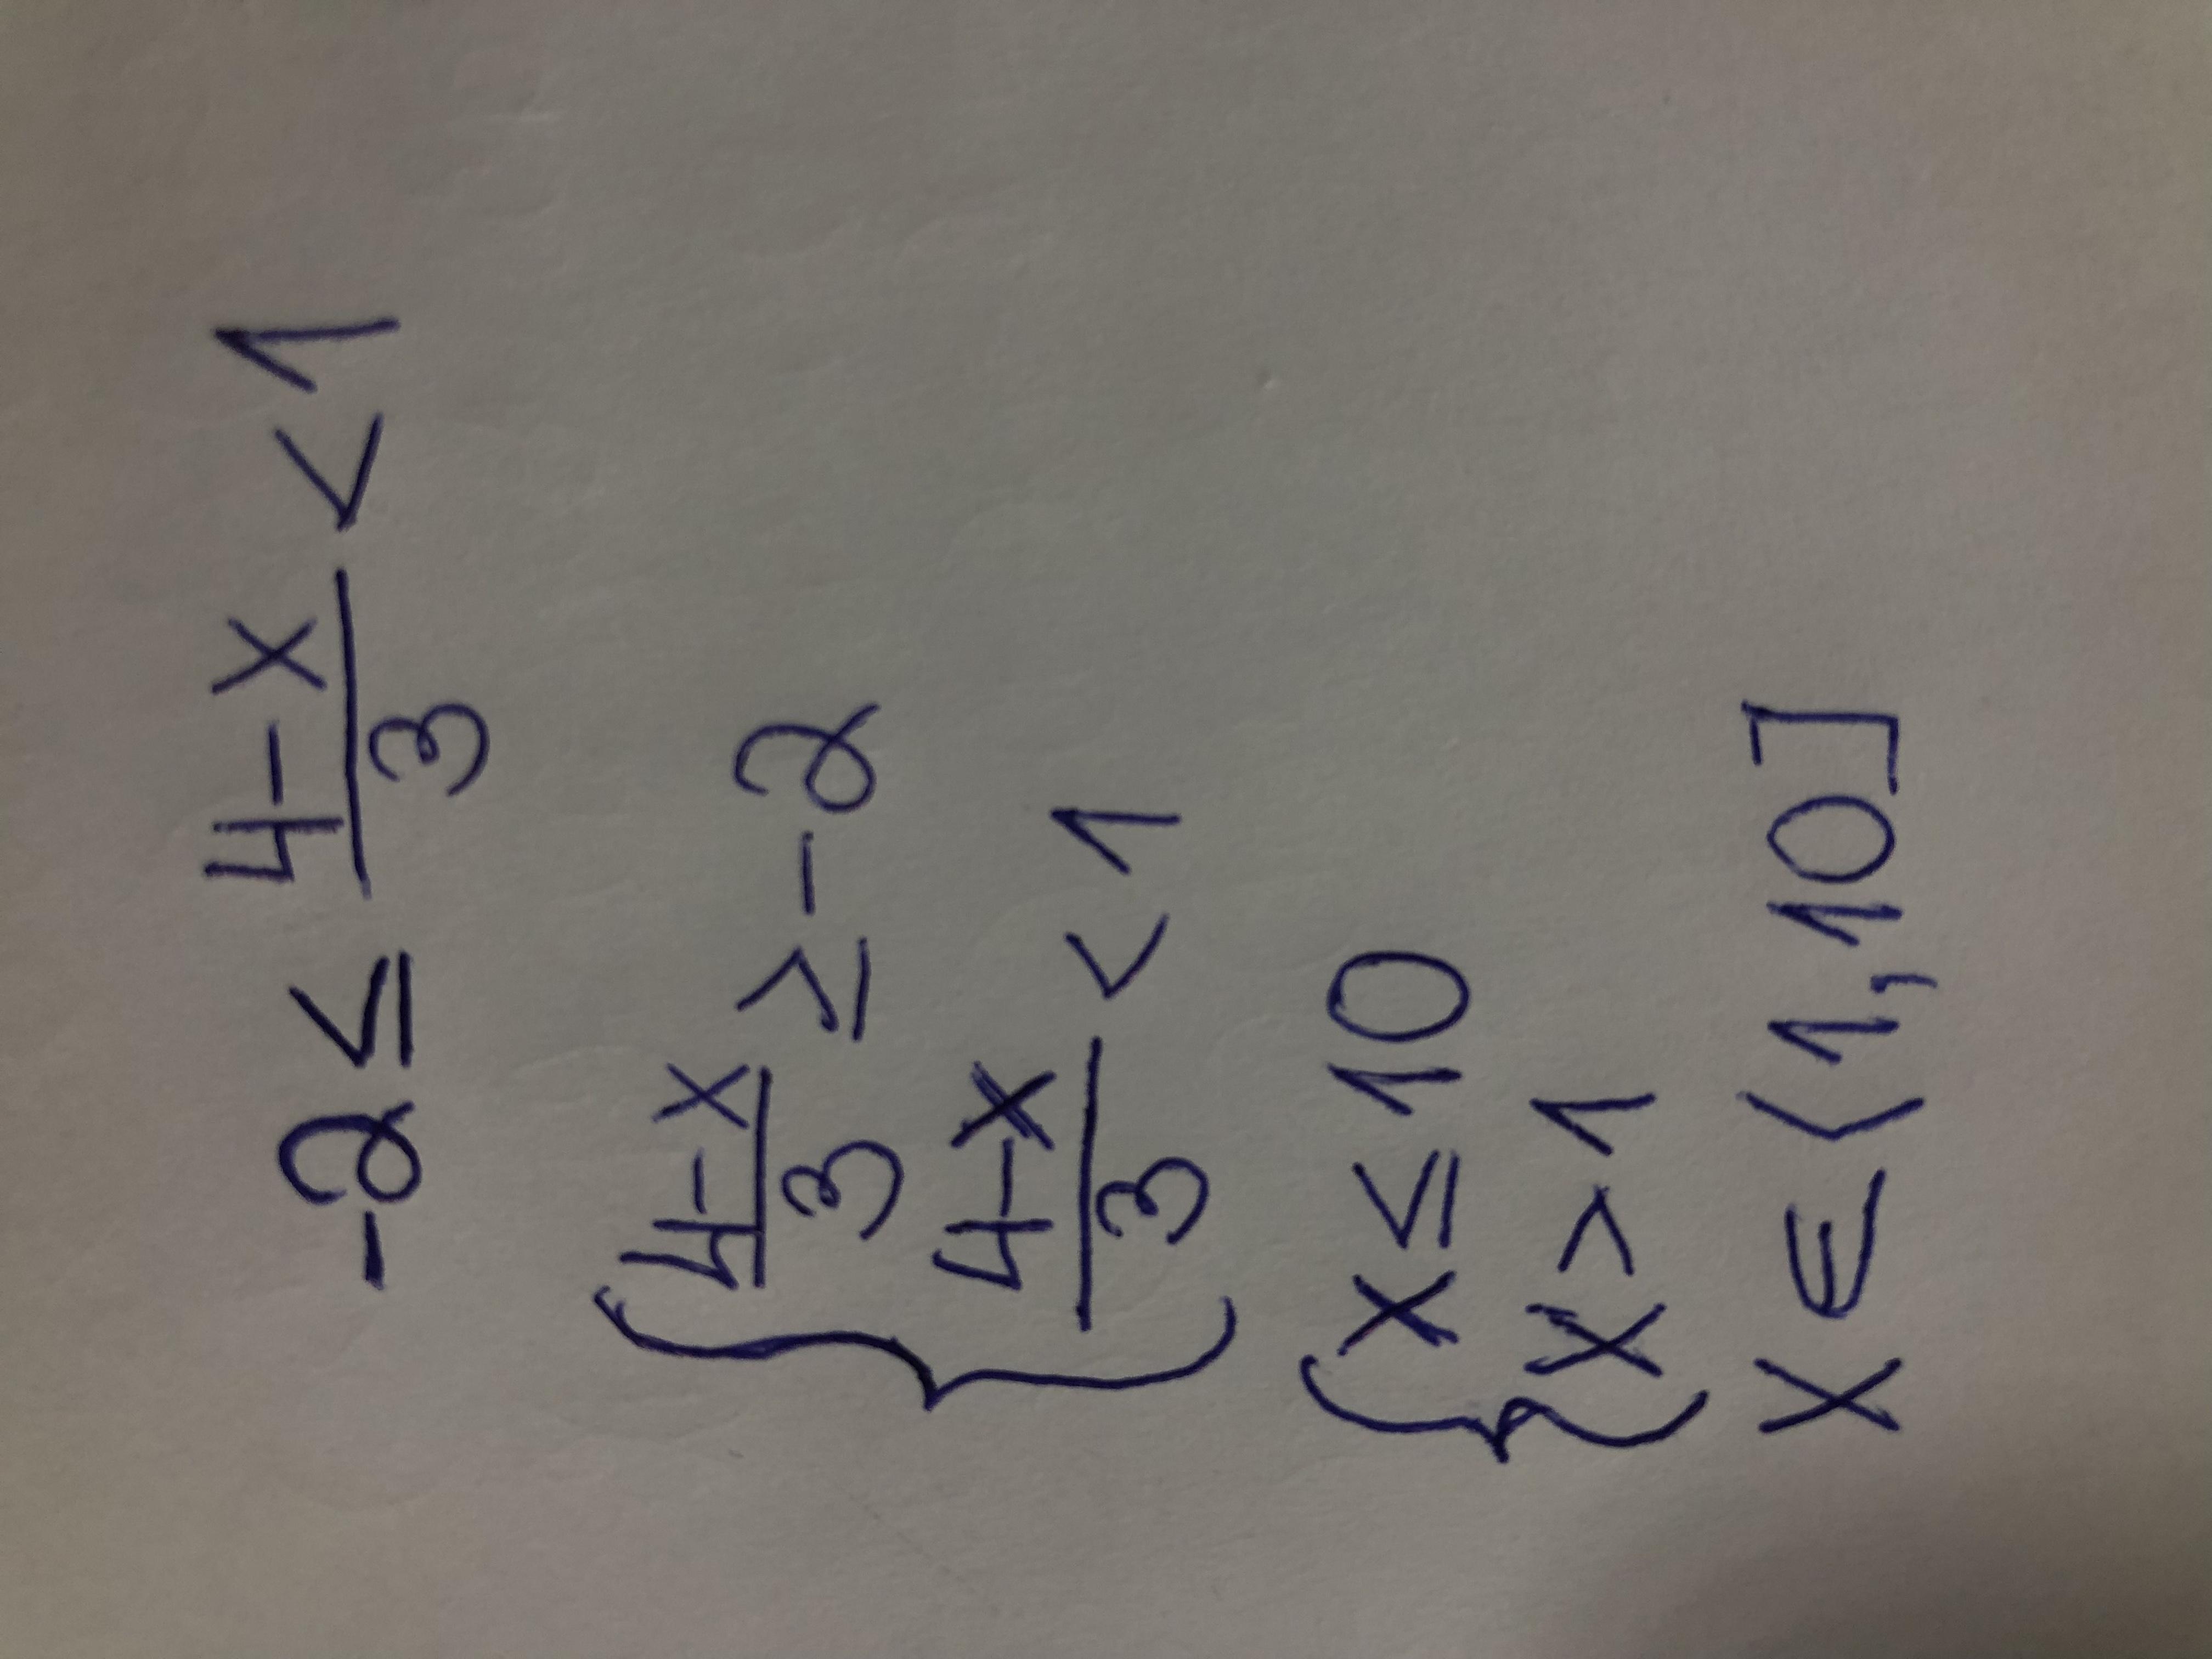 -2 ≤ (4-x)/3 < 1
{ (4-x)/3 ≥ -2
(4-x)/3 < 1
{ x ≤ 10
x > 1
x ∈ (1,10]